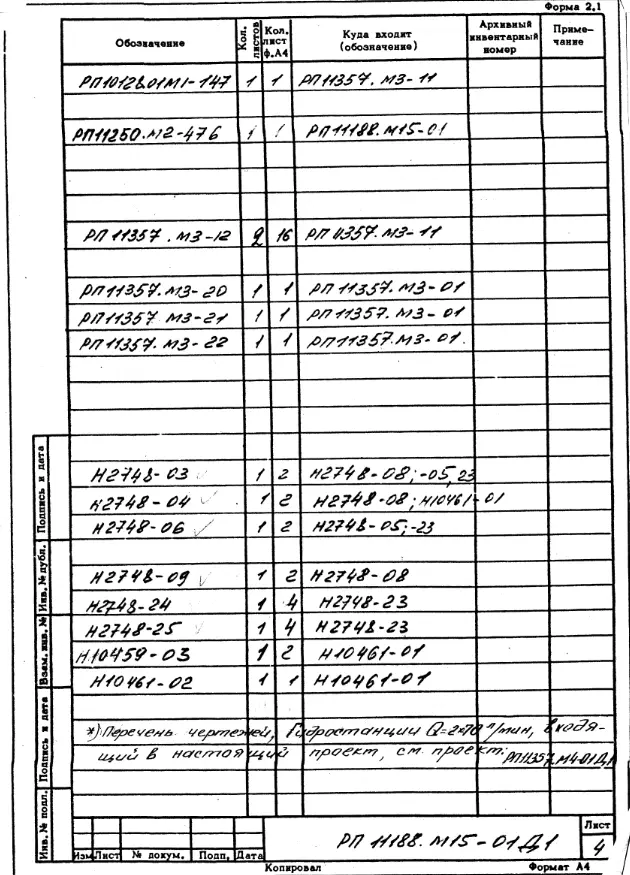 Форма 2.1
Обозначение Кол. листов Кол. лист ф.А4 Куда входит (обозначение) Архивный инвентарный номер Примечание
РП10128.01М1-147 1 1 РП11357.М3-11
РП11250.М2-476 1 1 РП11188.М15-01
РП11357.М3-12 2 16 РП11357.М3-11
РП11357.М3-20 1 1 РП11357.М3-01
РП11357 М3-21 1 1 РП11357.М3-01
РП11357.М3-22 1 1 РП11357.М3-01.
Н2748-03 1 2 Н2748-08; -05, 23
Н2748-04 1 2 Н2748-08; Н10461-01
Н2748-06 1 2 Н2748-05; -23
Н2748-09 1 2 Н2748-08
Н2748-24 1 4 Н2748-23
Н2748-25 1 4 Н2748-23
Н10459-03 1 2 Н10461-01
Н10461-02 1 1 Н10461-01
*) Перечень чертежей, Гидростанции Q=2×70 л/мин, входя-
щий в настоящий проект, см. проект: РП11357.М4-01Д1
Подпись и дата
Инв. № дубл.
Взам. инв. №
Подпись и дата
Инв. № подл.
Изм Лист № докум. Подп. Дата
РП 11188.М15-01Д1
Лист
4
Копировал Формат А4